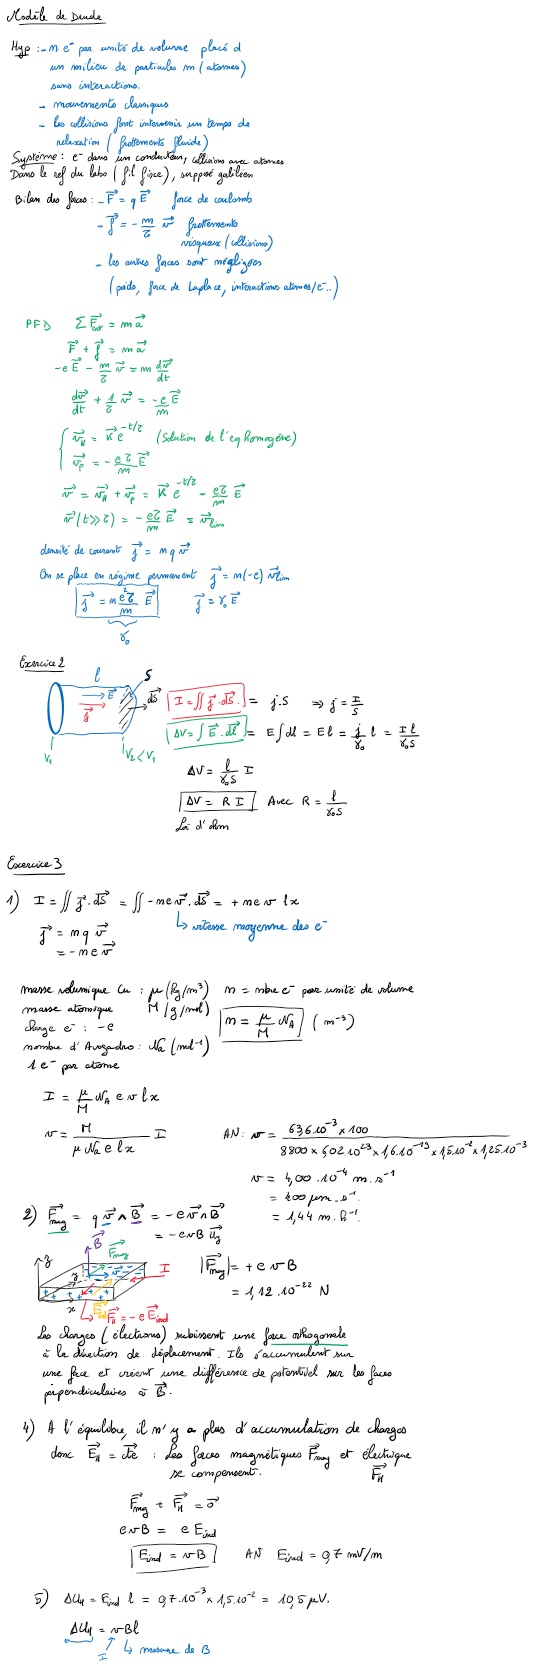 Modèle de Drude
Hyp : - n e⁻ par unité de volume placé d
un milieu de particules m (atomes)
sans interactions.
- mouvements classiques
- les collisions font intervenir un temps de
relaxation (frottements fluide)
Système : e⁻ dans un conducteur, collisions avec atomes
Dans le ref du labo (fil fixe), supposé galiléen
Bilan des forces : - F⃗ = q E⃗ force de coulomb
- f⃗ = - m/τ v⃗ frottements
visqueux (collisions)
- les autres forces sont négligées
(poids, force de Laplace, interactions atomes/e⁻..)
PFD Σ F⃗ext = m a⃗
F⃗ + f⃗ = m a⃗
-e E⃗ - m/τ v⃗ = m dv⃗/dt
dv⃗/dt + 1/τ v⃗ = -e/m E⃗
{ v⃗H = K⃗ e^(-t/τ) (Solution de l'eq homogène)
v⃗p = - eτ/m E⃗
v⃗ = v⃗H + v⃗p = K⃗ e^(-t/τ) - eτ/m E⃗
v⃗ (t≫τ) = - eτ/m E⃗ = v⃗lim
densité de courant j⃗ = n q v⃗
On se place en régime permanent j⃗ = n(-e) v⃗lim
j⃗ = n e²τ/m E⃗ j⃗ = γ₀ E⃗
γ₀
Exercice 2
l S
E⃗ dS⃗
j⃗
V₁ V₂ < V₁
I = ∬ j⃗ . dS⃗ = j.S ⇒ j = I/S
ΔV = ∫ E⃗ . dl⃗ = E ∫ dl = E l = j/γ₀ l = I l/γ₀S
ΔV = l/γ₀S I
ΔV = R I Avec R = l/γ₀S
Loi d'ohm
Exercice 3
1) I = ∬ j⃗ . dS⃗ = ∬ -n e v⃗ . dS⃗ = + n e v l x
j⃗ = n q v⃗ ↳ vitesse moyenne des e⁻
= - n e v⃗
masse volumique Cu : μ (kg/m³) n = nbre e⁻ par unité de volume
masse atomique M (g/mol) n = μ/M NA (m⁻³)
charge e⁻ : -e
nombre d'Avogadro : Na (mol⁻¹)
1 e⁻ par atome
I = μ/M NA e v l x
v = M/(μ Na e l x) I AN: v = 63,6.10⁻³ × 100/(8800 × 6,02.10²³ × 1,6.10⁻¹⁹ × 1,5.10⁻² × 1,25.10⁻³)
v = 4,00 .10⁻⁴ m.s⁻¹
= 400 μm.s⁻¹
= 1,44 m.h⁻¹
2) F⃗mag = q v⃗ ∧ B⃗ = - e v⃗ ∧ B⃗
= - e v B u⃗y
|F⃗mag| = + e v B
= 1,12.10⁻²² N
z B⃗ F⃗mag
y v⃗ I
x E⃗ind F⃗H = -e E⃗ind
Les charges (électrons) subissent une force orthogonale
à la direction de déplacement. Ils s'accumulent sur
une face et créent une différence de potentiel sur les faces
perpendiculaires à B⃗.
4) A l'équilibre, il n'y a plus d'accumulation de charges
donc E⃗H = cte : Les forces magnétiques F⃗mag et électrique
se compensent. F⃗H
F⃗mag + F⃗H = 0⃗
e v B = e Eind
Eind = v B AN Eind = 0,7 mV/m
5) ΔUH = Eind l = 0,7.10⁻³ × 1,5.10⁻² = 10,5 μV.
ΔUH = v B l
I ↳ mesure de B